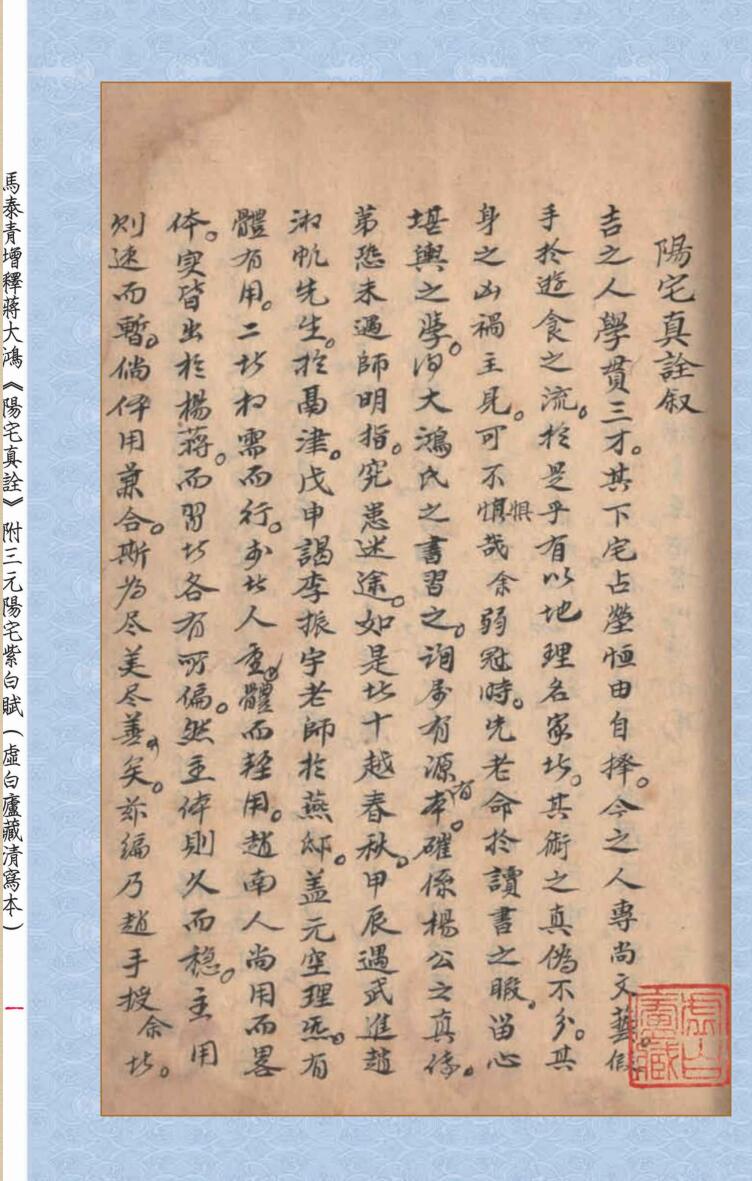 陽宅真詮叙
吉之人學貫三才。其下宅占塋恒由自擇。今之人專尚文藝。假
手於遊食之流。於是乎有以地理名家者。其術之真偽不分。其
身之凶禍立見。可不慎懼哉余弱冠時。先老命於讀書之暇。留心
堪輿之學。得大鴻氏之書習之。詢屬有源有本。確係楊公之真傳。
第恐未遇師明指。究患迷途。如是者十越春秋。甲辰遇武進趙
淑帆先生。於鬲津。戊申謁李振宇老師於燕邸。蓋元空理炁。有
體有用。二者相需而行。李北人重體而輕用。趙南人尚用而畧
体。实皆出於楊蔣。而習者各有所偏。然主体則久而穩。主用
则速而暫。倘体用兼合。斯為尽美尽善矣。茲編乃趙手授余者。
虛白廬藏
馬泰青增釋蔣大鴻《陽宅真詮》附三元陽宅紫白賦（虛白廬藏清寫本）
一